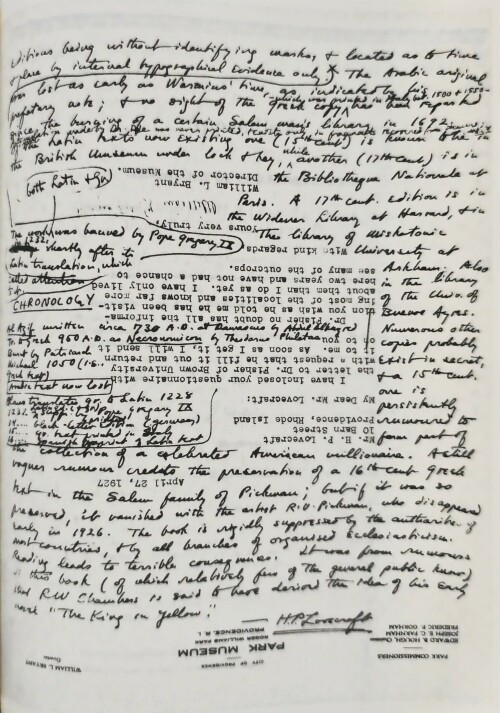 editions being without identifying marks, & located as to time
& place by internal typographical evidence only. The Arabic original
was lost as early as Wormius' time, as indicated by his
prefatory note; & no sight of the Greek copy
—which was printed in Italy bet. 1500 & 1550—
has been reported
since the burning of a certain Salem man's library in 1692.
Of the Latin texts now existing one (15th cent.) is known to be in
the British Museum under lock & key, while another (17th cent.) is in
the Bibliothèque Nationale at
Paris. A 17th cent. edition is in
the Widener Library at Harvard, & in
the library of Miskatonic
University at
Arkham. Also
in the library
of the Univ. of
Buenos Ayres.
Numerous other
copies probably
exist in secret,
& a 15th cent.
one is
persistently
rumoured to
form part of
the collection of a celebrated American millionaire. A still
vaguer rumour credits the preservation of a 16th cent. Greek
text in the Salem family of Pickman; but if it was so
preserved, it vanished with the artist R.U. Pickman, who disappeared
early in 1926. The book is rigidly suppressed by the authorities of
most countries, & by all branches of organised ecclesiasticism.
Reading leads to terrible consequences. It was from rumours
of this book (of which relatively few of the general public know)
that R.W. Chambers is said to have derived the idea of his early
novel "The King in Yellow".
H.P. Lovecraft
both Latin & Gr.
The work was banned by Pope Gregory IX
1232, shortly after its
Latin translation, which
called attention
to it.
CHRONOLOGY
Al Azif written circa 730 A.D. at Damascus by Abdul Alhazred
Tr. to Greek 950 A.D. as Necronomicon by Theodorus Philetas
Burnt by Patriarch Michael 1050 (i.e.
Greek text)
Arabic text now lost
Olaus translates Gr. to Latin 1228
1232 Pope Gregory IX
14... black-letter edition (Germany)
15... Gr. text printed in Italy
16... Spanish reprint of Latin text
PARK COMMISSIONERS
EDWARD B. HOUGH,
JOSEPH E. C. FARNHAM
FREDERIC F. GORHAM
CITY OF PROVIDENCE
PARK MUSEUM
ROGER WILLIAMS PARK
PROVIDENCE, R. I.
WILLIAM L. BRYANT
Director
April 27, 1927
Mr. H. P. Lovecraft
10 Barn Street
Providence, Rhode Island
My Dear Mr. Lovecraft:
I have inclosed your questionnaire with
the letter to Dr. Fisher of Brown University
with a request that he fill it out and return
it to me. As soon as I get it, I will send it
on to you.
Dr. Fisher no doubt has all the informa-
tion you wish as he told me he has been visit-
ing most of the localities and knows far more
about them than I do as yet. I have only lived
here two years and have not had a chance to
see many of the outcrops.
With kind regards
Yours very truly,
William L. Bryant
Director of the Museum.